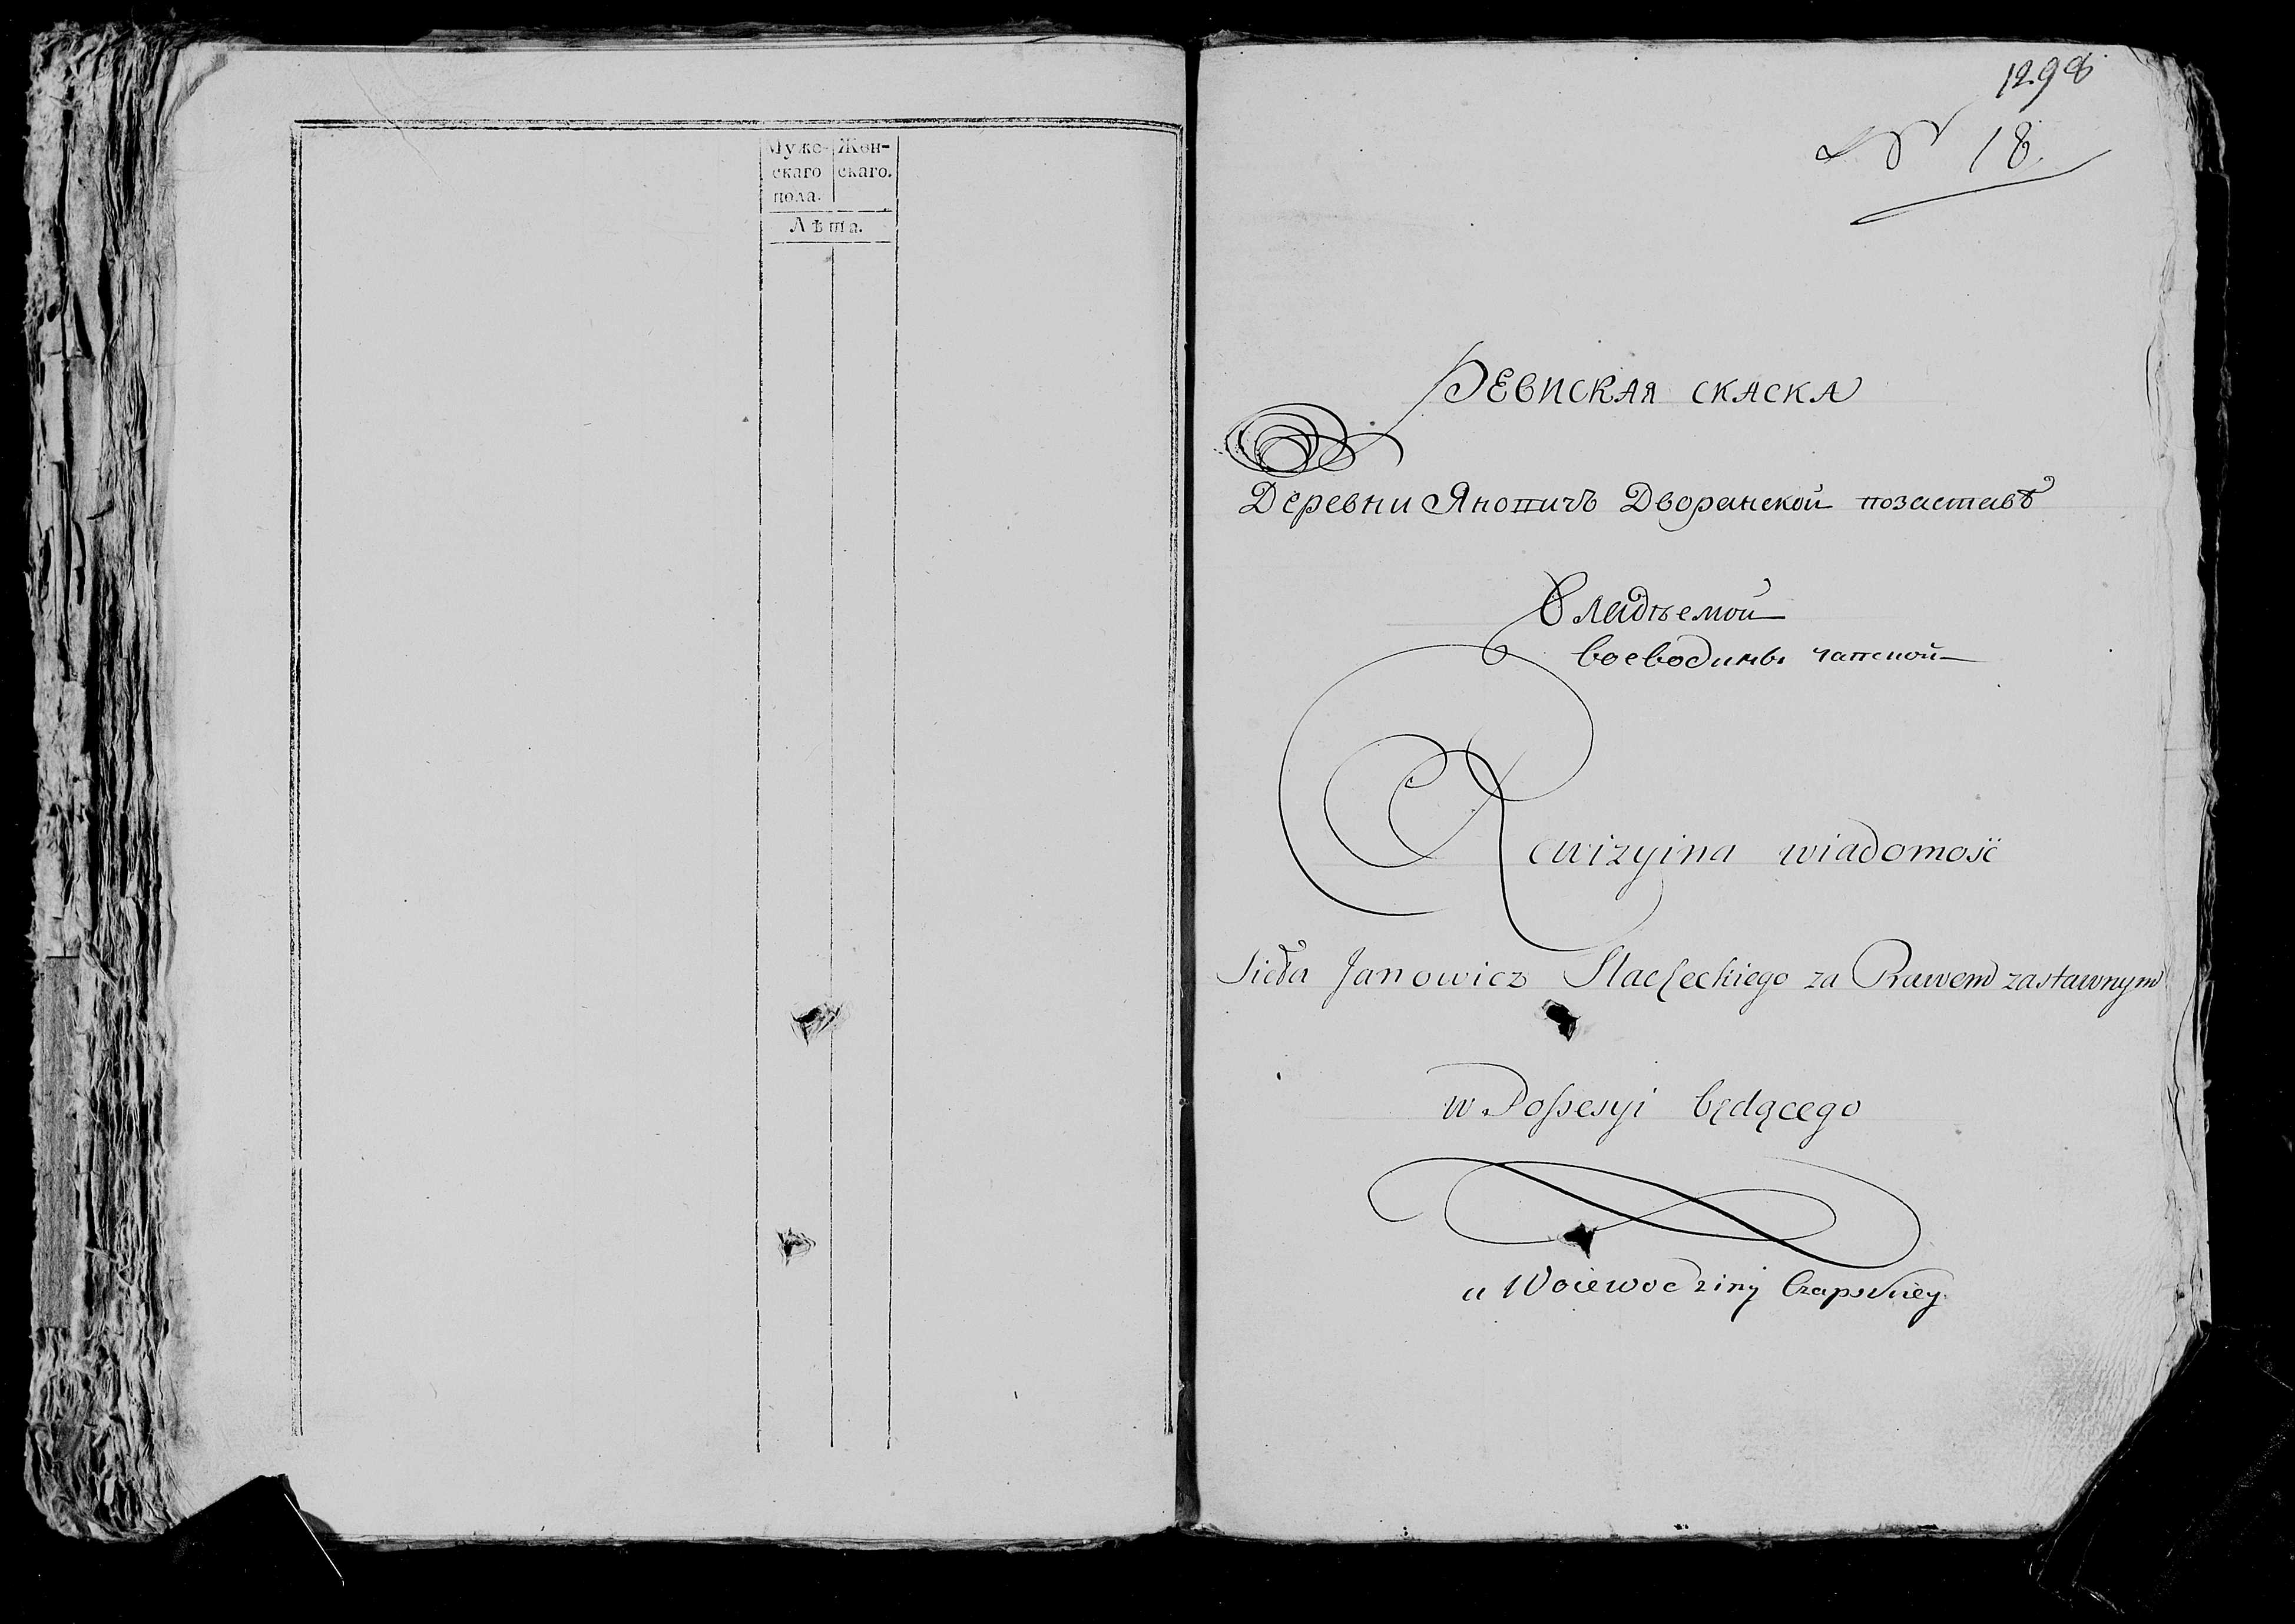 Муже-
скаго
пола.
Жен-
скаго.
Лѣта.
1298
№ 18.
Ревиская скаска
Деревни Янопичъ Дворанской позаставѣ
Владѣемой
воеводины чапской
Rewizyina wiadomość
Sioła Janowicz Slacheckiego za Prawem zastawnym
w Possesyi będącego
u Woiewodziny Czapskiey